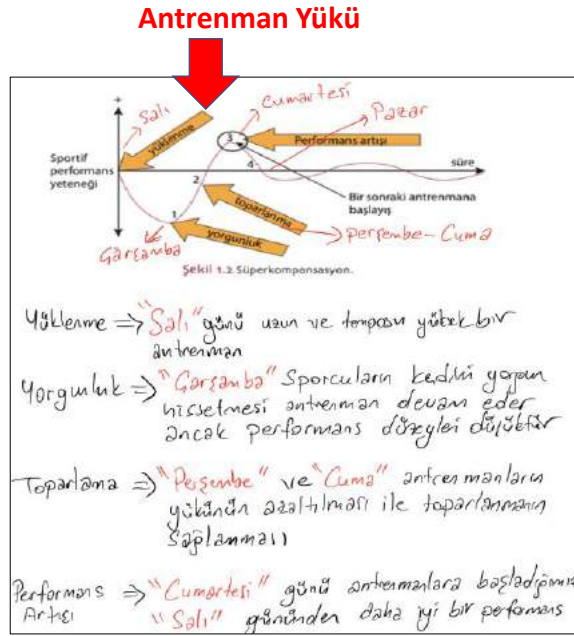 Antrenman Yükü
+
Salı
Cumartesi
Pazar
yüklenme
3
Performans artışı
Sportif
performans
yeteneği
süre
4
2
Bir sonraki antrenmana
başlayış
toparlanma
1
yorgunluk
Perşembe - Cuma
Çarşamba
Şekil 1.2. Süperkompansasyon.
Yüklenme => "Salı" günü uzun ve temposu yüksek bir
antrenman
Yorgunluk => "Çarşamba" Sporcuların kedini yorgun
hissetmesi antrenman devam eder
ancak performans düzeylei düşüktür
Toparlama => "Perşembe" ve "Cuma" antrenmanların
yükünün azaltılması ile toparlanmanın
sağlanması
Performans => "Cumartesi" günü antrenmanlara
Artışı "Salı" gününden daha iyi bir performans